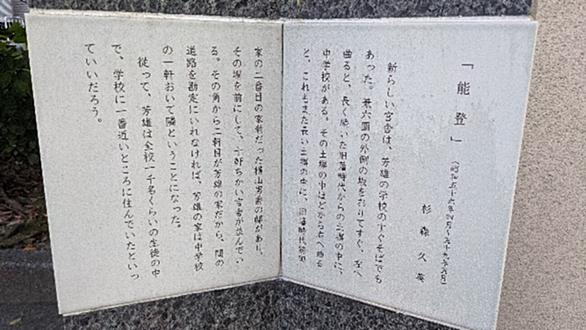 「能登」
杉森久英
新らしい官舎は、芳雄の学校のすぐそばでも
あった。兼六園の外側の坂をおりてすぐ、左へ
曲ると、長く続いた旧藩時代からの土塀の中に、
中学校がある。その土塀の中ほどから右へ曲る
と、これもまた長い土塀の中に、旧藩時代
家の二番目の家柄だった横山男爵の邸があり、
その塀を前にして、
る。その角から二軒目が芳雄の家だから、間の
道路を勘定にいれなければ、芳雄の家は中学校
の一軒おいて隣ということになった。
従って、芳雄は全校一千名くらいの生徒の中
で、学校に一番近いところに住んでいたといっ
ていいだろう。